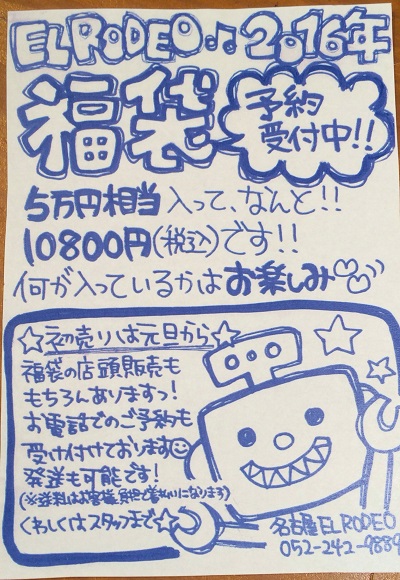 EL RODEO♫2016年
福袋
予約
受付中!!
5万円相当入って、なんと!!
10800円(税込)です!!
何が入っているかはお楽しみ
☆初売りは元旦から☆
福袋の店頭販売も
もちろんありますっ!
お電話でのご予約も
受け付けております☺
発送も可能です!
(※送料はお客様負担で着払いになります)
くわしくはスタッフまで☆
名古屋EL RODEO
052-242-9889